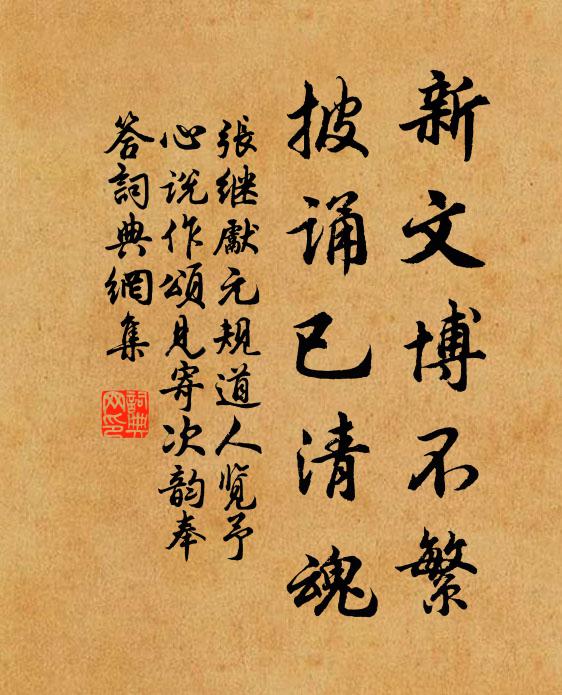 新文博不繁
披诵已清魂
張继獻元規道人覽予
心说作頌見寄次韵奉
答詞典網集
詞典
网印